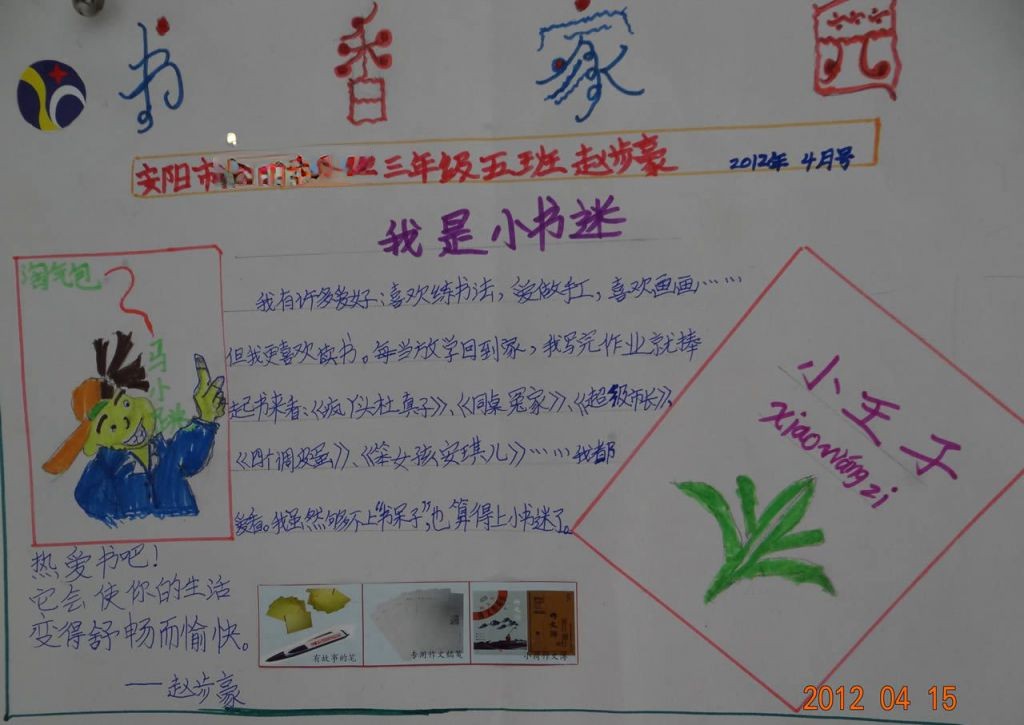 书香家苑
安阳市 三年级五班 赵步豪 2012年 4月号
我是小书迷
淘气包
马小跳
我有许多爱好:喜欢练书法,爱做手工,喜欢画画……
但我更喜欢读书。每当放学回到家,我写完作业就捧
起书来看:《疯丫头杜真子》、《同桌冤家》、《超级市长》、
《四个调皮蛋》、《笨女孩安琪儿》……我都
爱看。我虽然够不上“书呆子”,也算得上小书迷了。
小王子
xiaowángzi
热爱书吧!
它会使你的生活
变得舒畅而愉快。
——赵步豪
有故事的笔
专用作文稿笺
2012 04 15